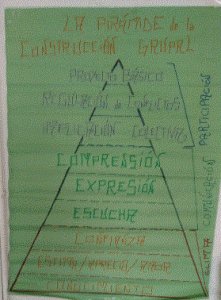 LA PIRÁMIDE de la
CONSTRUCCIÓN GRUPAL
PROYECTO BÁSICO
REGULACIÓN de CONFLICTOS
COMPRENSIÓN
EXPRESIÓN
ESCUCHA
CONFIANZA
CONOCIMIENTO
PARTICIPACIÓN
COMUNICACIÓN